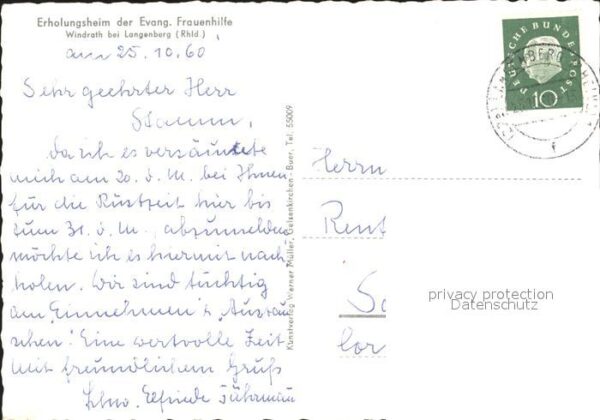 Erholungsheim der Evang. Frauenhilfe
Windrath bei Langenberg (Rhld.)
am 25.10.60
Sehr geehrter Herr
Stamm,
da ich es versäumte
mich am 20. d. M. bei Ihnen
für die Rüstzeit hier bis
zum 31. d. M., abzumelden
möchte ich es hiermit nach
holen. Wir sind tüchtig
am „Einnehmen" u. „Austau
schen". Eine wertvolle Zeit
mit freundlichem Gruß
Schw. Elfriede Führmann
Kunstverlag Werner Müller, Gelsenkirchen-Buer, Tel. 55009
DEUTSCHE BUNDESPOST
10
Herrn
Rent
lor
privacy protection
Datenschutz